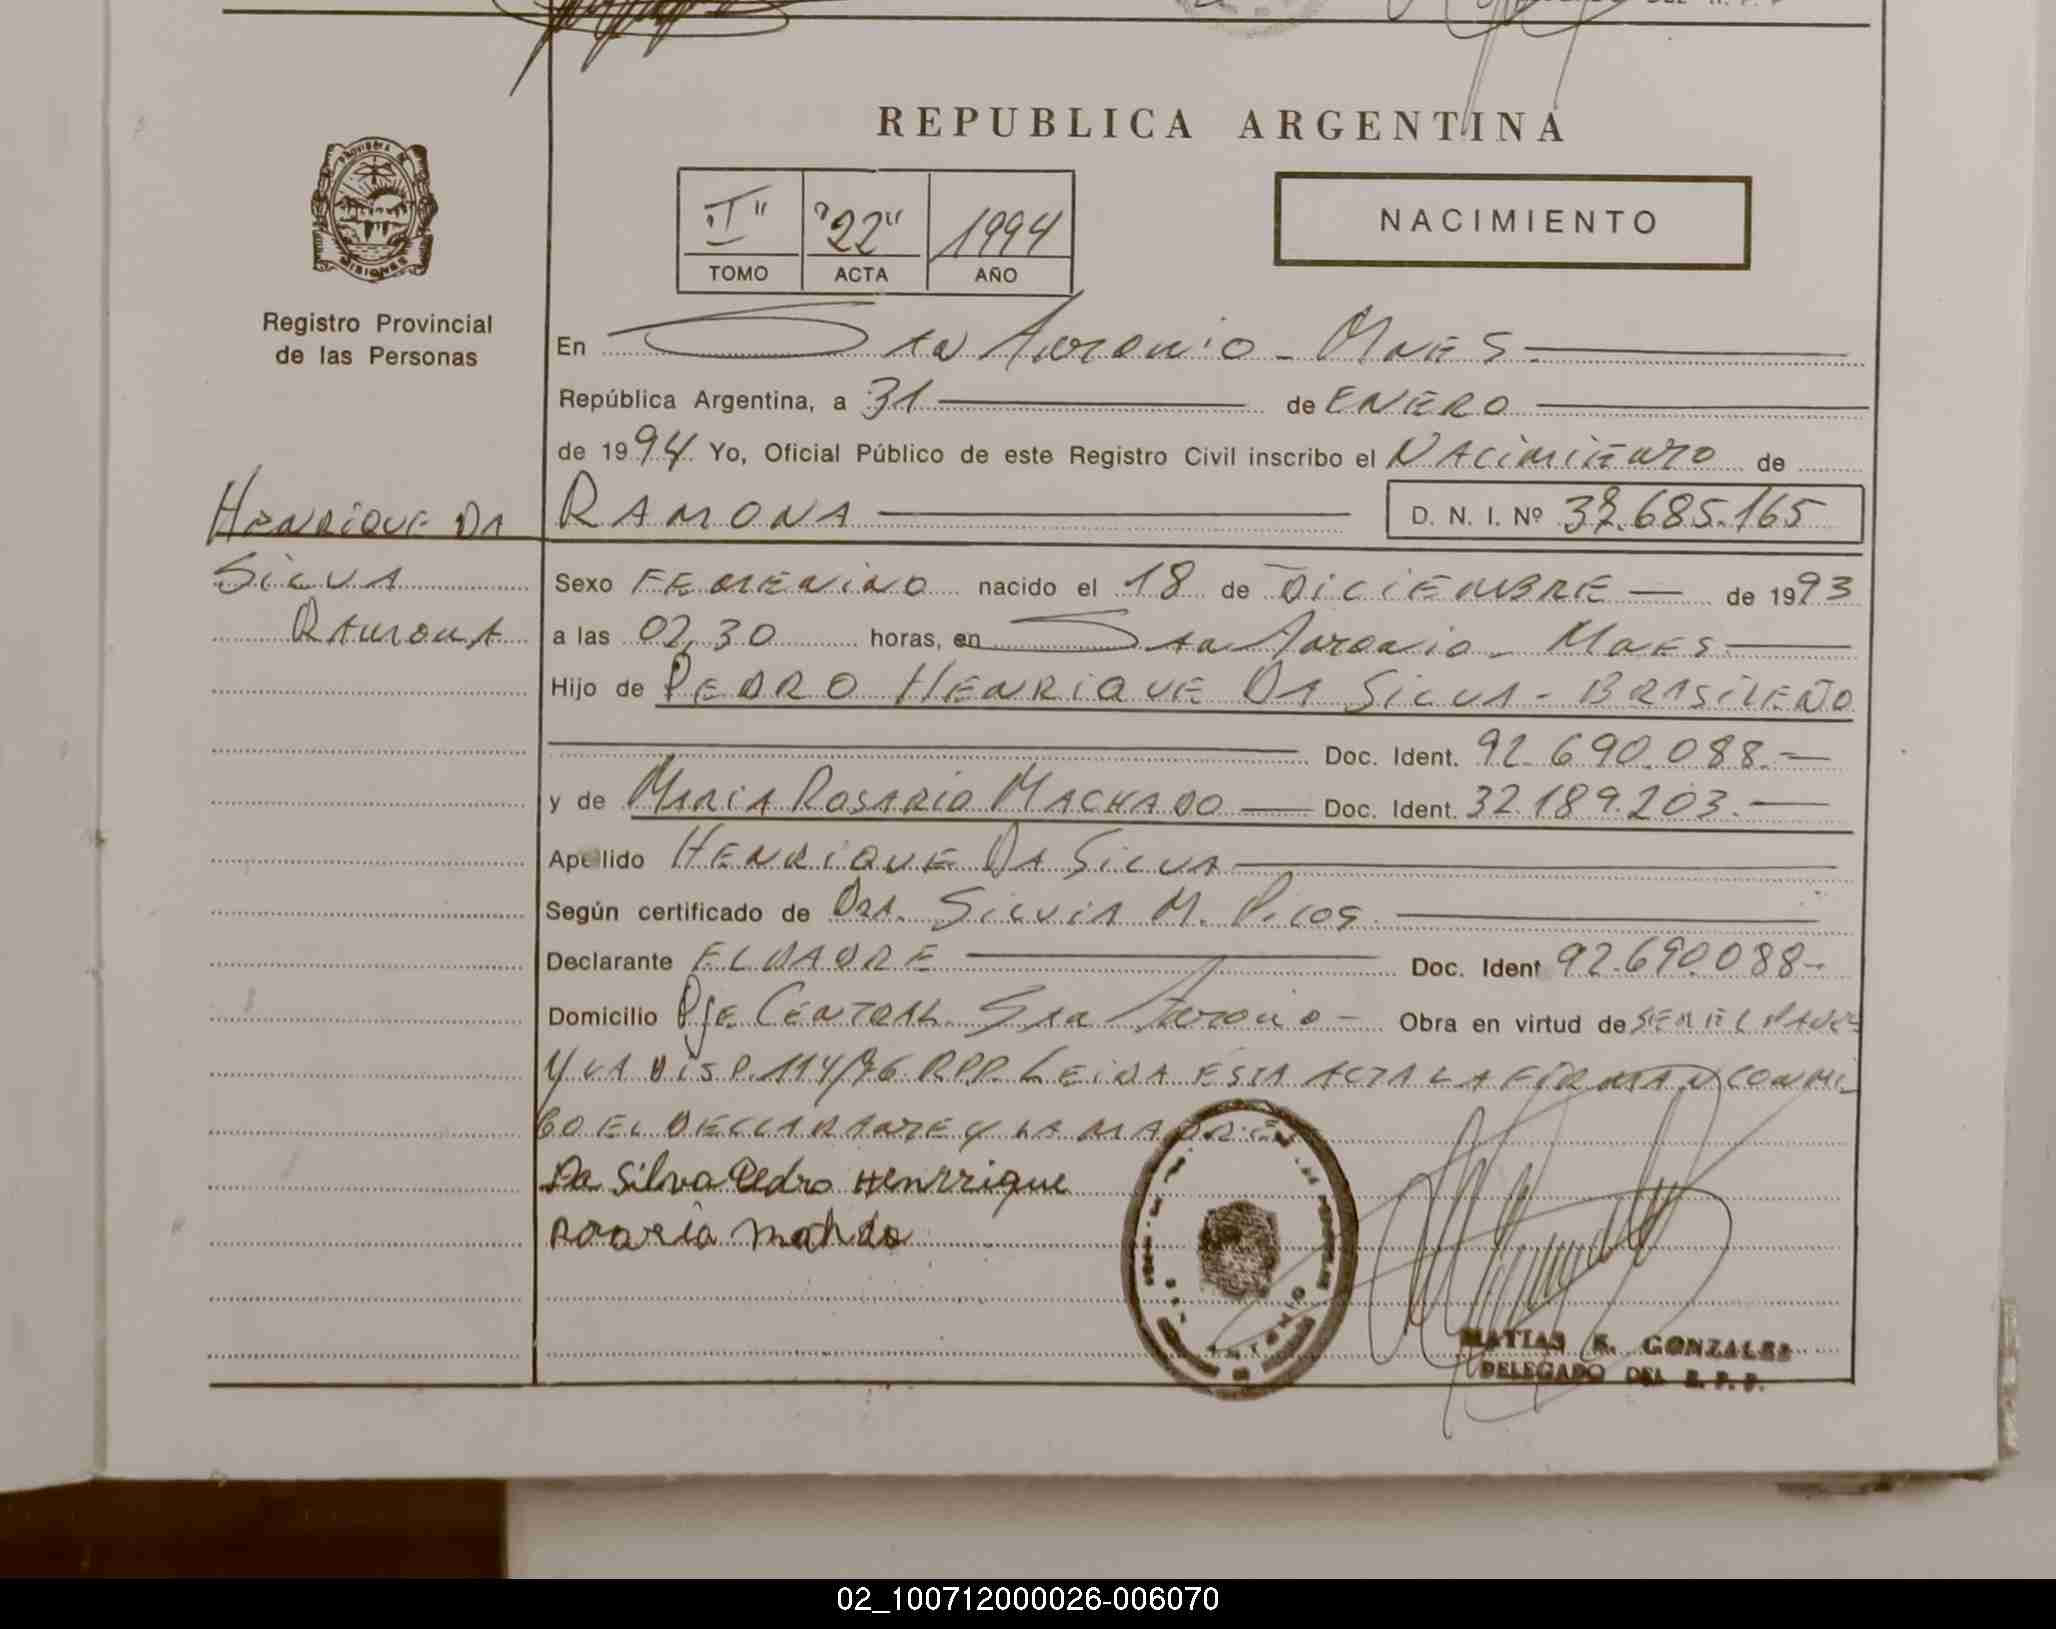 REPUBLICA ARGENTINA
PROVINCIA DE
MISIONES
Registro Provincial
de las Personas
"I" "22" 1994
TOMO ACTA AÑO
NACIMIENTO
En San Antonio - Mnes.
República Argentina, a 31 de ENERO
de 1994 Yo, Oficial Público de este Registro Civil inscribo el NACIMIENTO de
HENRIQUE DA
SILVA
RAMONA
RAMONA D. N. I. Nº 38.685.165
Sexo FEMENINO nacido el 18 de DICIEMBRE de 1993
a las 02,30 horas, en San Antonio - Mnes
Hijo de PEDRO HENRIQUE DA SILVA - BRASILEÑO
Doc. Ident. 92.690.088.-
y de MARIA ROSARIO MACHADO Doc. Ident. 32.189.203.-
Apellido HENRIQUE DA SILVA
Según certificado de DRA. SILVIA M. PICOS
Declarante EL PADRE Doc. Ident 92.690.088-
Domicilio Pje CENTRAL San Antonio - Obra en virtud de SER EL PADRE
Y LA DISP. 114/76 RPP. LEIDA ESTA ACTA LA FIRMAN CONMI
GO EL DECLARANTE Y LA MADRE
Da Silva Pedro Henrrique
MATIAS R. GONZALEZ
DELEGADO DEL R. P. P.
02_100712000026-006070